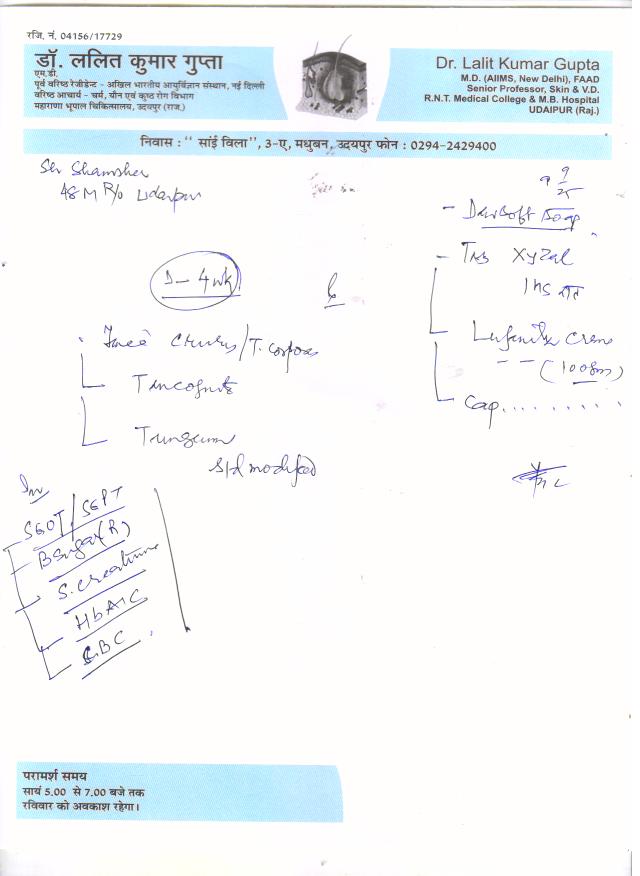 रजि. नं. 04156/17729
डॉ. ललित कुमार गुप्ता
एम.डी.
पूर्व वरिष्ठ रेजीडेन्ट - अखिल भारतीय आयुर्विज्ञान संस्थान, नई दिल्ली
वरिष्ठ आचार्य - चर्म, यौन एवं कुष्ठ रोग विभाग
महाराणा भूपाल चिकित्सालय, उदयपुर (राज.)
Dr. Lalit Kumar Gupta
M.D. (AIIMS, New Delhi), FAAD
Senior Professor, Skin & V.D.
R.N.T. Medical College & M.B. Hospital
UDAIPUR (Raj.)
निवास : '' सांई विला'', 3-ए, मधुबन, उदयपुर फोन : 0294-2429400
Shamsher
48 M R/o Udaipur
9 9/25
- Soap
- Tab Xyzal
1 HS रात
D - 4 wk
/ T. corporis
T
(100gm)
Cap.........
s/d modified
Inv
SGOT / SGPT
B Sugar (R)
S. Creatinine
HbA1C
CBC
परामर्श समय
सायं 5.00 से 7.00 बजे तक
रविवार को अवकाश रहेगा।